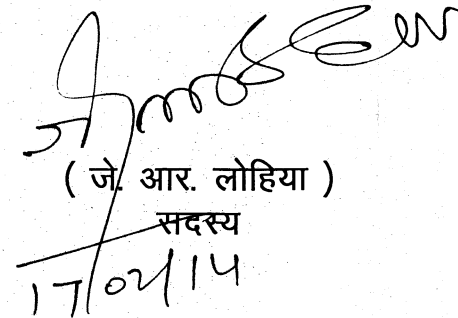 ( जे. आर. लोहिया )
सदस्य
17/02/14